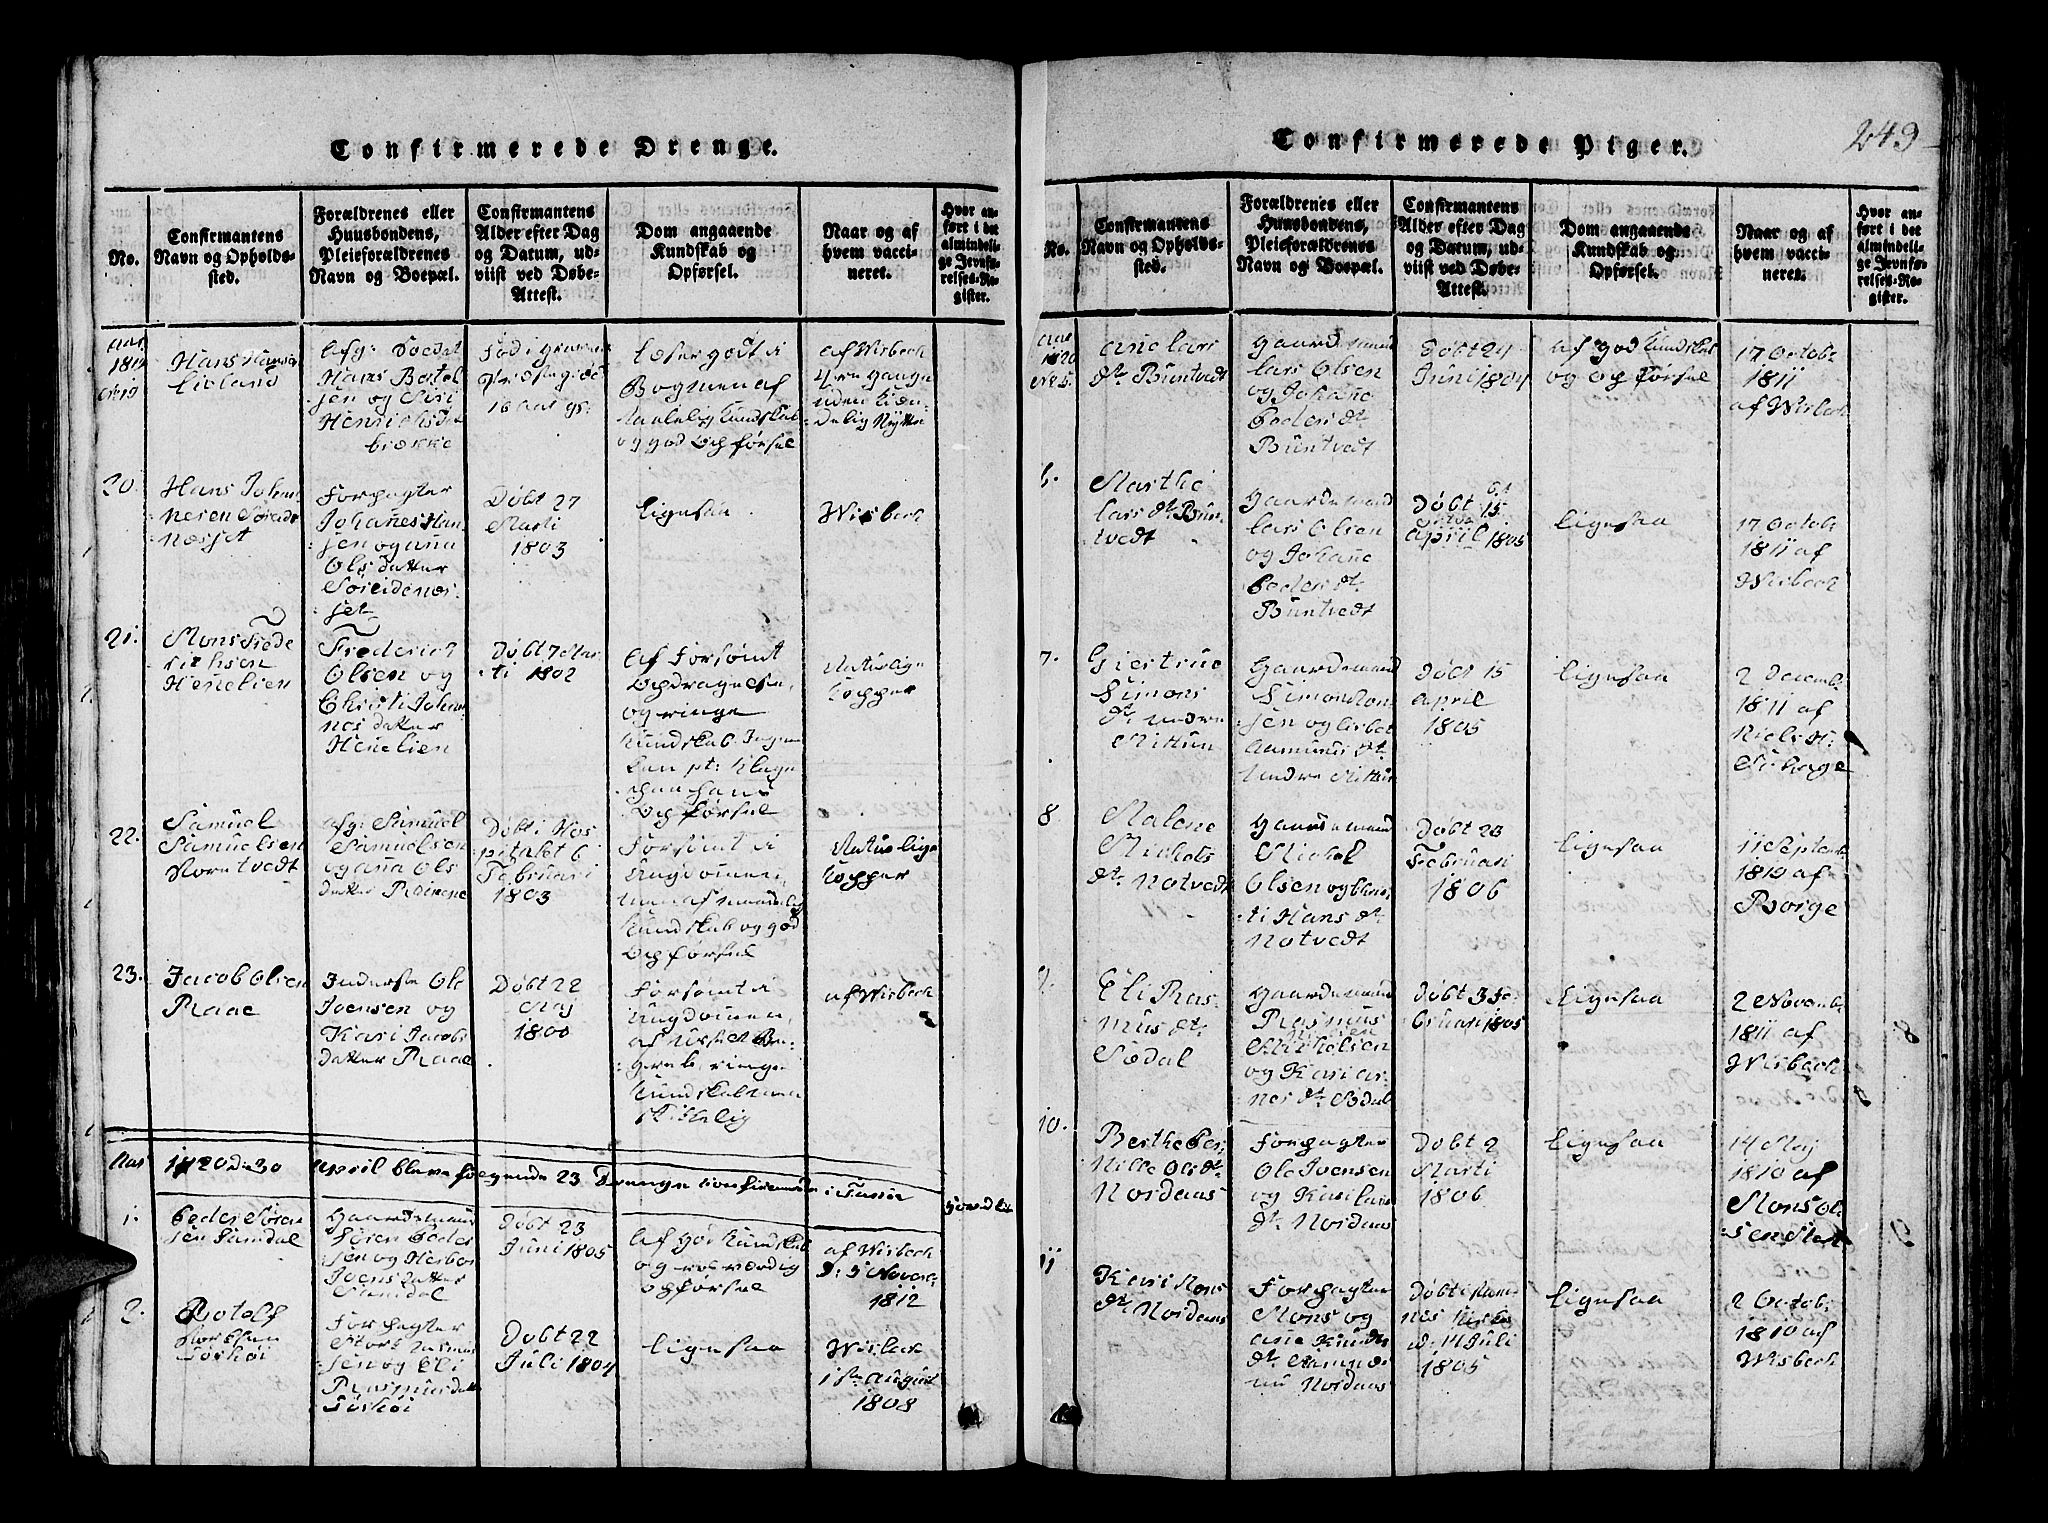 Confirmerede Drenge.
No.
Confirmantens
Navn og Opholds-
sted.
Forældrenes eller
Huusbondens,
Pleieforældrenes
Navn og Boepæl.
Confirmantens
Alder efter Dag
og Datum, ud-
viist ved Døbe-
Attest.
Dom angaaende
Kundskab og
Opførsel.
Naar og af
hvem vacci-
neret.
Hvor an-
ført i det
almindeli-
ge Jevnfø-
relses-Re-
gister.
Aar
1819
No 19
Hans Hansen
afg: Soldat
Hans Bertel
sen og Siri
Henrichsdat
brække
Fød i
16 Aar
Læser godt i
Bogmen af
Kundskab
og god Opførsel
af Wisbech
4re gange
uden kien-
delig Nytte
20.
Hans Johan
nesen Søreids
næsset
Forpagter
Johanes Han
sen og Anna
Olsdatter
Søreidenæs-
set
Døbt 27
Marti
1803
Ligesaa
Wisbech
21.
Mons Frede
richsen
Henelien
Frederich
Olsen og
Christi Johan
nesdatter
Henelien
Døbt 7 Mar
ti 1802
af Forsømt
Opdragelse,
og ringe
Kundskab. Ingen
kan pt: klage
paa hans
Opførsel
Naturlige
Kopper
22.
Samuel
Samuelsen
Nortvedt
afg: Samuel
Samuelsen
og Anna Ols
datter
Døbt i Hos
pitalet 6
Februari
1803
Forsømt i
Ungdommen,
Kundskab og god
Opførsel
Naturlige
Kopper
23.
Jacob Olsen
Raae
Inderste Ole
Ivensen og
Kari Jacobs
datter Raae
Døbt 22
Maj
1800
Forsømt i
Ungdommen,
ringe
Kundskab men
skikkelig
af Wisbech
Aar
1820 de 30
April bleve følgende 23 Drenge confirmerede i Fane
Hovedki
1.
Peder Søren
sen Samdal
Gaardemand
Søren Peder
sen og Herbor
Ivensdatter
Samdal
Døbt 23
Juni 1805
af god Kundskab
og roesværdig
Opførsel
af Wisbech
D: 5 Novemb
1812
2.
Rotolf
Forpagter
sen og Eli
Rasmusdatt
Døbt 22
Juli 1804
Ligesaa
Wisbech
1ste August
1808
Confirmerede Piger.
249
No.
Confirmantens
Navn og Opholds-
sted.
Forældrenes eller
Huusbondens,
Pleieforældrenes
Navn og Boepæl.
Confirmantens
Alder efter Dag
og Datum, ud-
viist ved Døbe-
Attest.
Dom angaaende
Kundskab og
Opførsel.
Naar og af
hvem vacci-
neret.
Hvor an-
ført i det
almindeli-
ge Jevnfø-
relses-Re-
gister.
Aar
1820
No 5.
Ane Lars
dtr Buntvedt
Gaardemand
Lars Olsen
og Johane
Pedersdtr
Buntvedt
Døbt 24
Juni 1804
af god Kundskab
og Opførsel
17 Octobr
1811
af Wisbech
6.
Marthe
Larsdtr Bun
tvedt
Gaardemand
Lars Olsen
og Johane
Pedersdtr
Buntvedt
Døbt 15
April 1805
Ligesaa
17 Octobr
1811 af
Wisbech
7.
Giertrue
Simons
dtr indre
Mittun
Gaardemand
Simon Mon
sen og Lisbet
Aamunds dtr
Indre Mittun
Døbt 15
April
1805
Ligesaa
2 Decemb
1811 af
Niels H:
8
Malene
Michels
dtr Notvedt
Gaardemand
Michel
Olsen og
Hans dtr
Notvedt
Døbt 23
Februari
1806
Ligesaa
11 Septemb
1810 af
Børge
9.
Eli Ras
mus dtr
Sødal
Gaardemand
Rasmus
Michelsen
og Kari Ar
nes dtr Sødal
Døbt 3 Fe
bruari 1805
Ligesaa
2 Novemb
1811 af
Wisbech
8
10.
Berthe Per
nille Ols dtr
Nordaas
Forpagter
Ole Ivensen
og Kari Lars
dtr Nordaas
Døbt 2
Marti
1806
Ligesaa
14 Maj
1810 af
Mons Ol
sen
9
11
Kari Mons
dtr Nordaas
Forpagter
Mons og
Ane Knuds
dtr
nu Nordaas
Døbt i
nes Kirke
d. 14 Juli
1805
Ligesaa
2 Octobr
1810 af
Wisbech